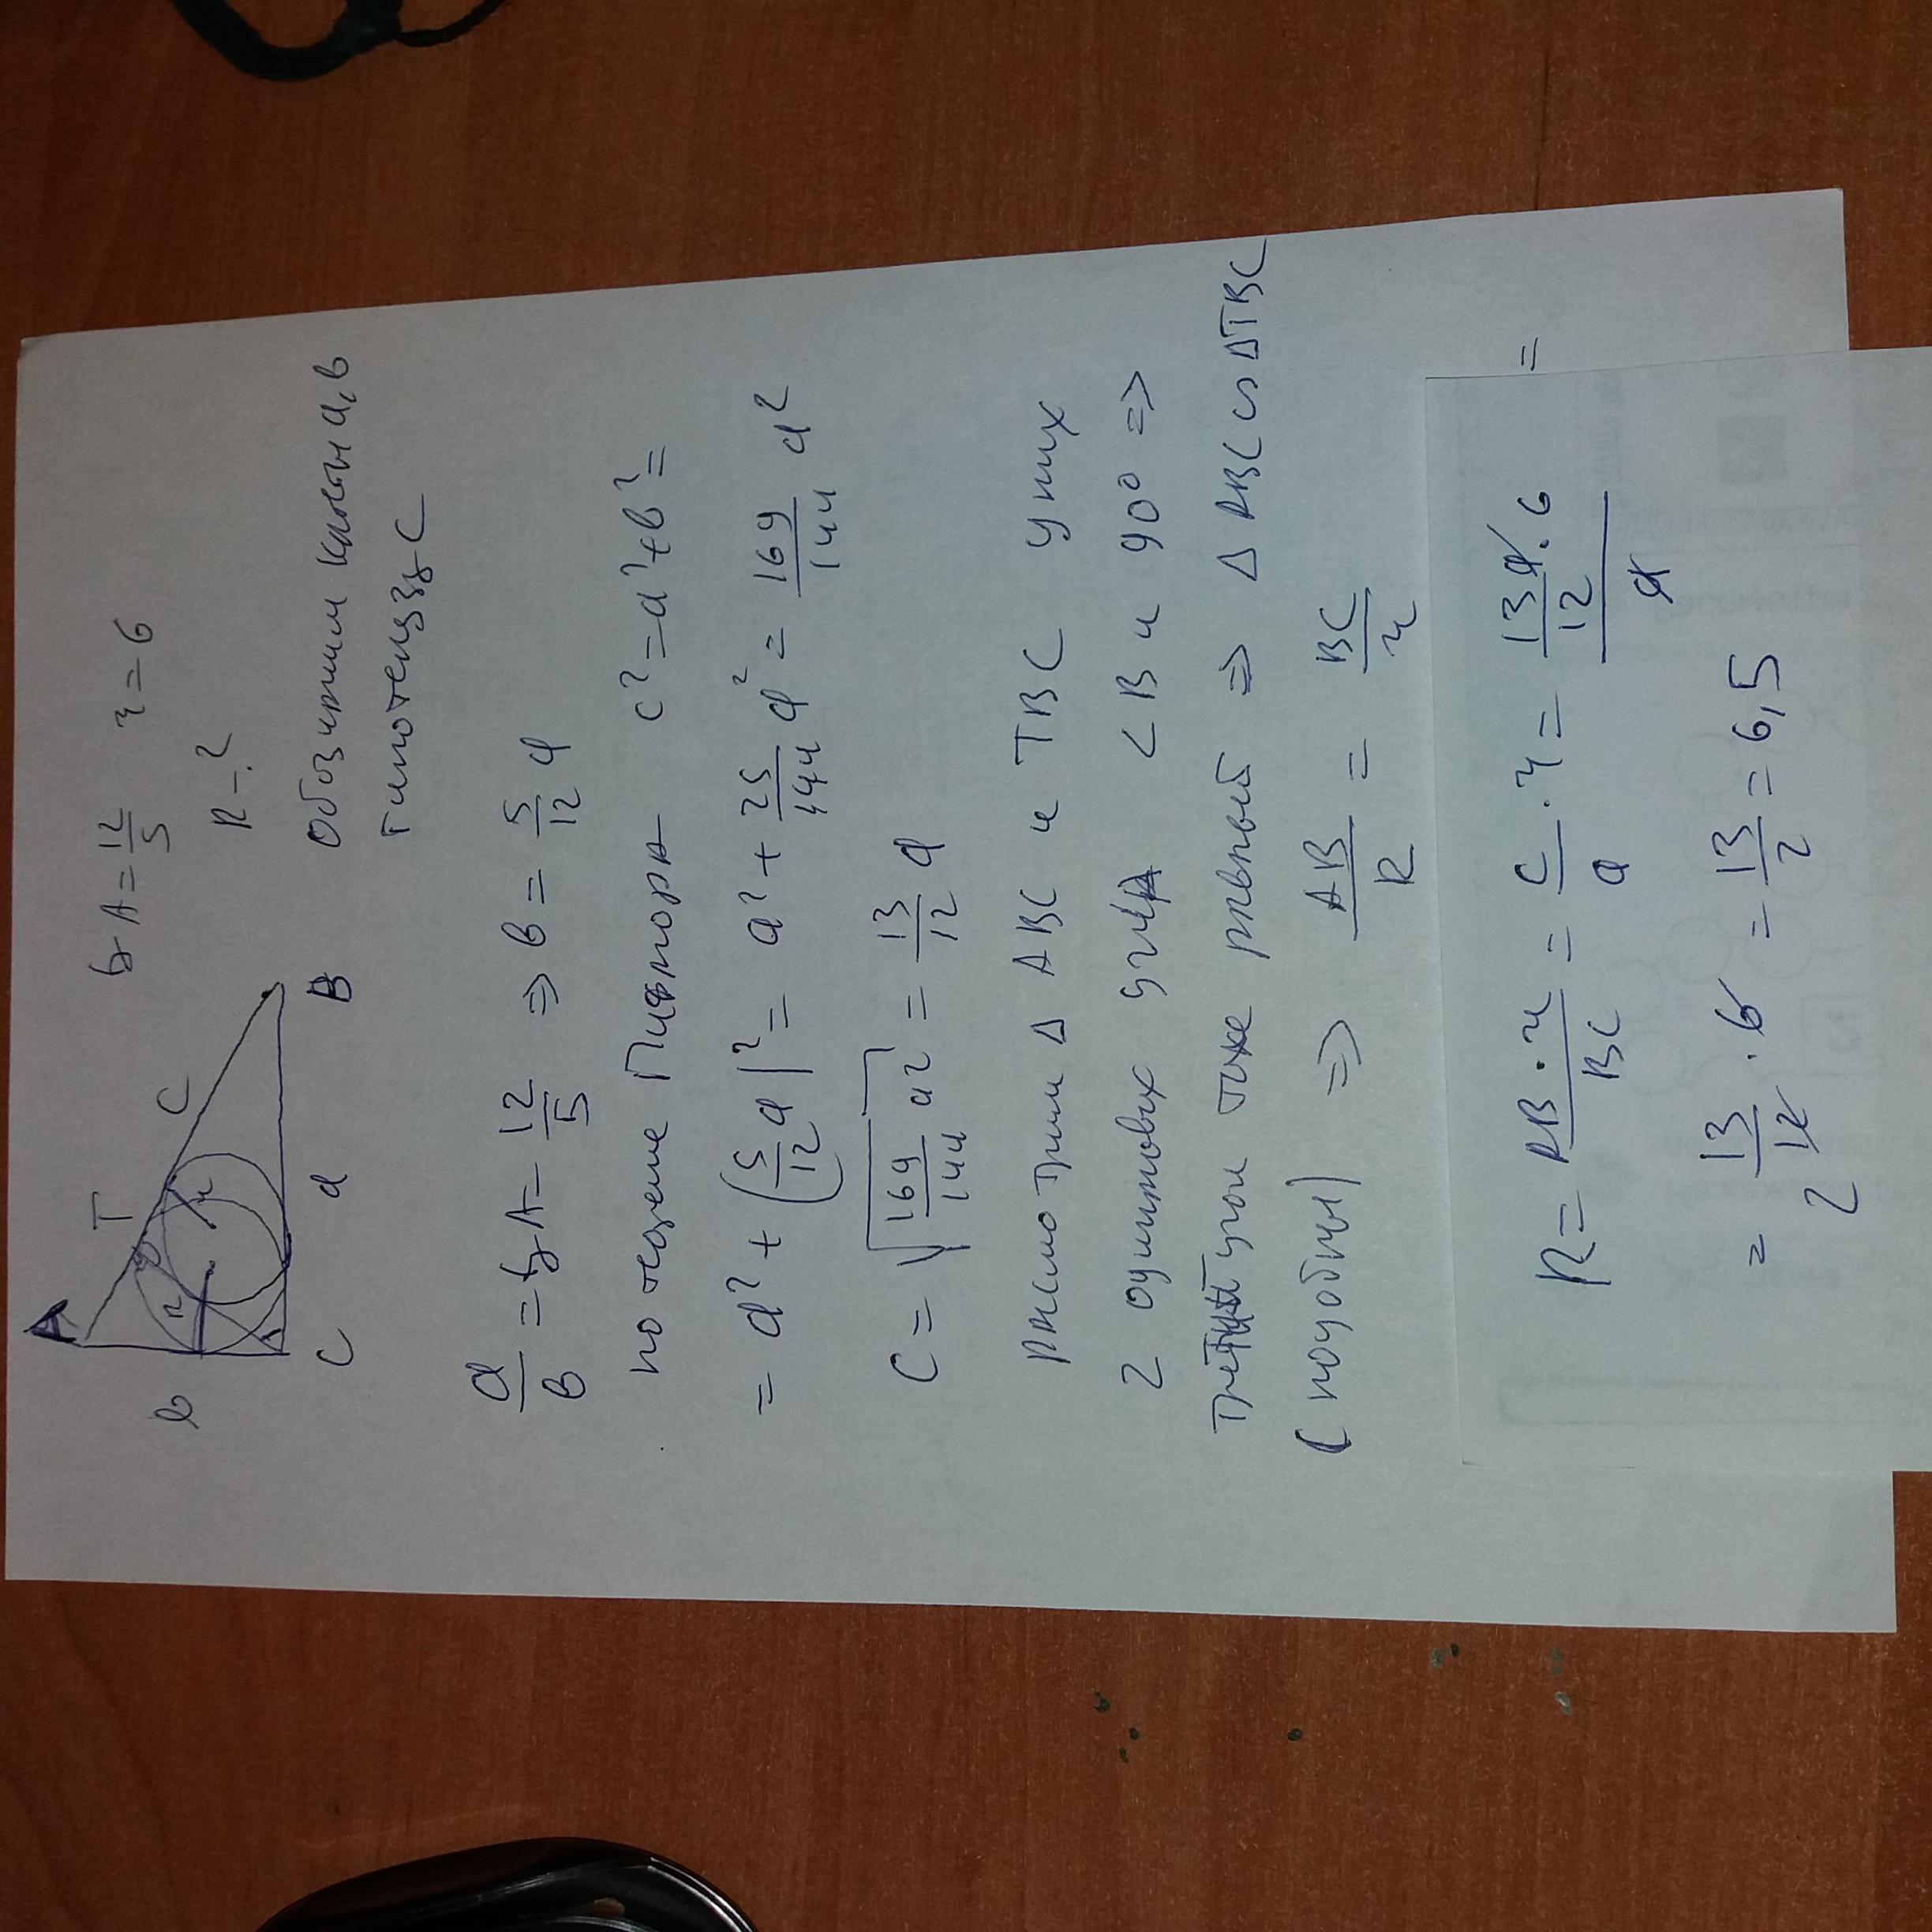 A
T
C
b
r
C
a
B
tg A = 12/5 r = 6
R - ?
Обозначим катеты a, b
гипотенуза C
a/b = tg A = 12/5 => b = 5/12 a
по теореме Пифагора c² = a² + b² =
= a² + (5/12 a)² = a² + 25/144 a² = 169/144 a²
C = √(169/144 a²) = 13/12 a
рассмотрим Δ ABC и TBC у них
2 одинаковых угла <B и 90° =>
Третий угол тоже равный => Δ ABC ∽ ΔTBC
(подобны) => AB/R = BC/r
R = AB · r/BC = C/a · r = 13a/12 · 6/a =
= 13/12 · 6 = 13/2 = 6,5
2